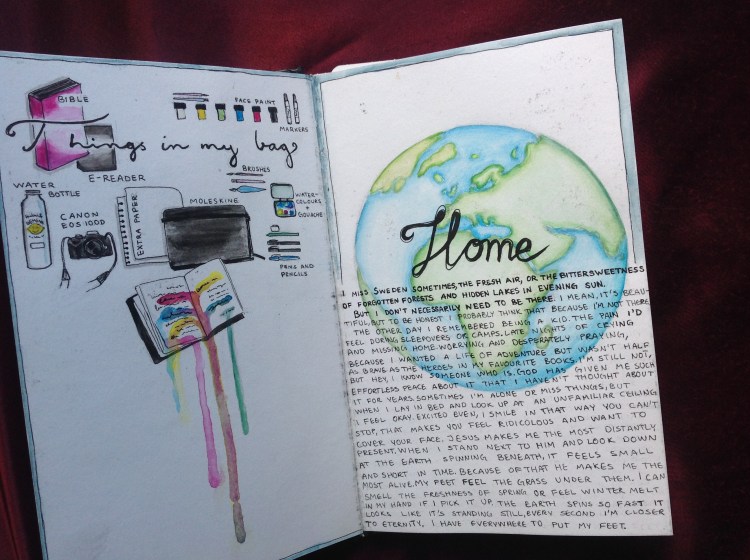 BIBLE
FACE PAINT
MARKERS
Things in my bag
E-READER
BRUSHES
WATER
BOTTLE
CANON
EOS 100D
EXTRA PAPER
MOLESKINE
WATER-
COLOURS
+
GOUACHE
PENS AND
PENCILS
Home
I MISS SWEDEN SOMETIMES, THE FRESH AIR, OR THE BITTERSWEETNESS
OF FORGOTTEN FORESTS AND HIDDEN LAKES IN EVENING SUN.
BUT I DON'T NECESSARILY NEED TO BE THERE. I MEAN, IT'S BEAU-
TIFUL, BUT TO BE HONEST I PROBABLY THINK THAT BECAUSE I'M NOT THERE
THE OTHER DAY I REMEMBERED BEING A KID. THE PAIN I'D
FEEL DURING SLEEPOVERS OR CAMPS. LATE NIGHTS OF CRYING
AND MISSING HOME. WORRYING AND DESPERATELY PRAYING,
BECAUSE I WANTED A LIFE OF ADVENTURE BUT WASN'T HALF
AS BRAVE AS THE HEROES IN MY FAVOURITE BOOKS. I'M STILL NOT,
BUT HEY, I KNOW SOMEONE WHO IS. GOD HAS GIVEN ME SUCH
EFFORTLESS PEACE ABOUT IT THAT I HAVEN'T THOUGHT ABOUT
IT FOR YEARS. SOMETIMES I'M ALONE OR MISS THINGS, BUT
WHEN I LAY IN BED AND LOOK UP AT AN UNFAMILIAR CEILING
I FEEL OKAY. EXCITED EVEN, I SMILE IN THAT WAY YOU CAN'T
STOP, THAT MAKES YOU FEEL RIDICOLOUS AND WANT TO
COVER YOUR FACE. JESUS MAKES ME THE MOST DISTANTLY
PRESENT. WHEN I STAND NEXT TO HIM AND LOOK DOWN
AT THE EARTH SPINNING BENEATH, IT FEELS SMALL
AND SHORT IN TIME. BECAUSE OF THAT HE MAKES ME THE
MOST ALIVE. MY FEET FEEL THE GRASS UNDER THEM. I CAN
SMELL THE FRESHNESS OF SPRING OR FEEL WINTER MELT
IN MY HAND IF I PICK IT UP. THE EARTH SPINS SO FAST IT
LOOKS LIKE IT'S STANDING STILL, EVERY SECOND I'M CLOSER
TO ETERNITY, I HAVE EVERYWHERE TO PUT MY FEET.